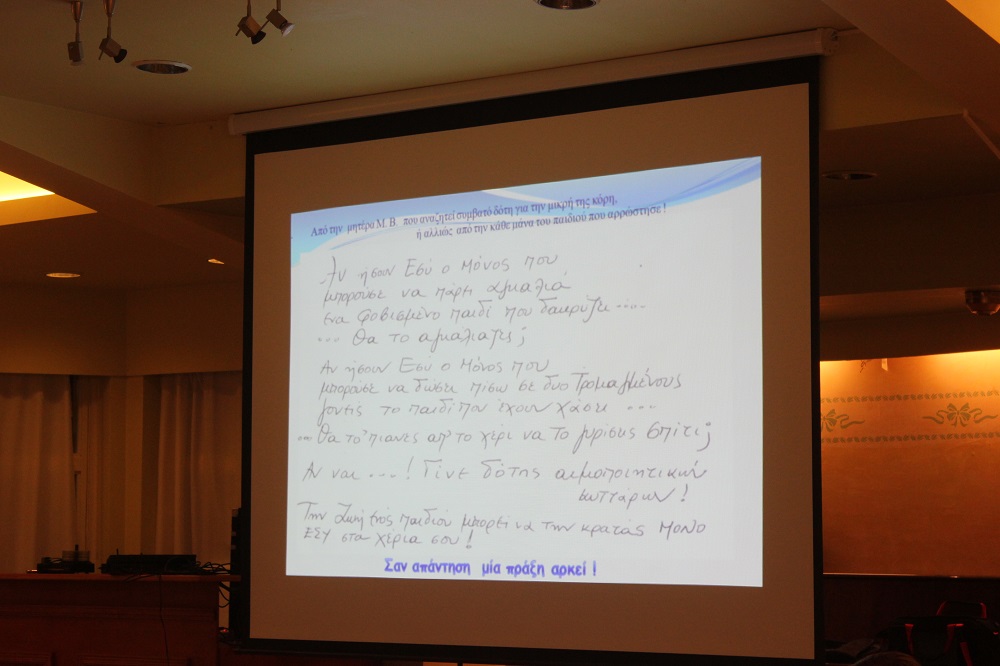 Από την μητέρα Μ. Β. που αναζητεί συμβατό δότη για την μικρή της κόρη,
ή αλλιώς από την κάθε μάνα του παιδιού που αρρώστησε !
Αν ήσουν Εσύ ο Μόνος που
μπορούσε να πάρει αγκαλιά
ένα φοβισμένο παιδί που δακρύζει ....
... Θα το αγκαλιαζες;
Αν ήσουν Εσύ ο Μόνος που
μπορούσε να δώσει πίσω σε δυο Τρομαγμένους
γονείς το παιδί που έχουν χάσει ...
... Θα το 'πιανες απ' το χέρι να το γυρίσεις Σπίτι;
Αν ναι ...! Γίνε δότης αιμοποιητικών
κυττάρων !
Την Ζωή ενός παιδιού μπορεί να την κρατάς ΜΟΝΟ
ΕΣΥ στα χέρια σου !
Σαν απάντηση μία πράξη αρκεί !